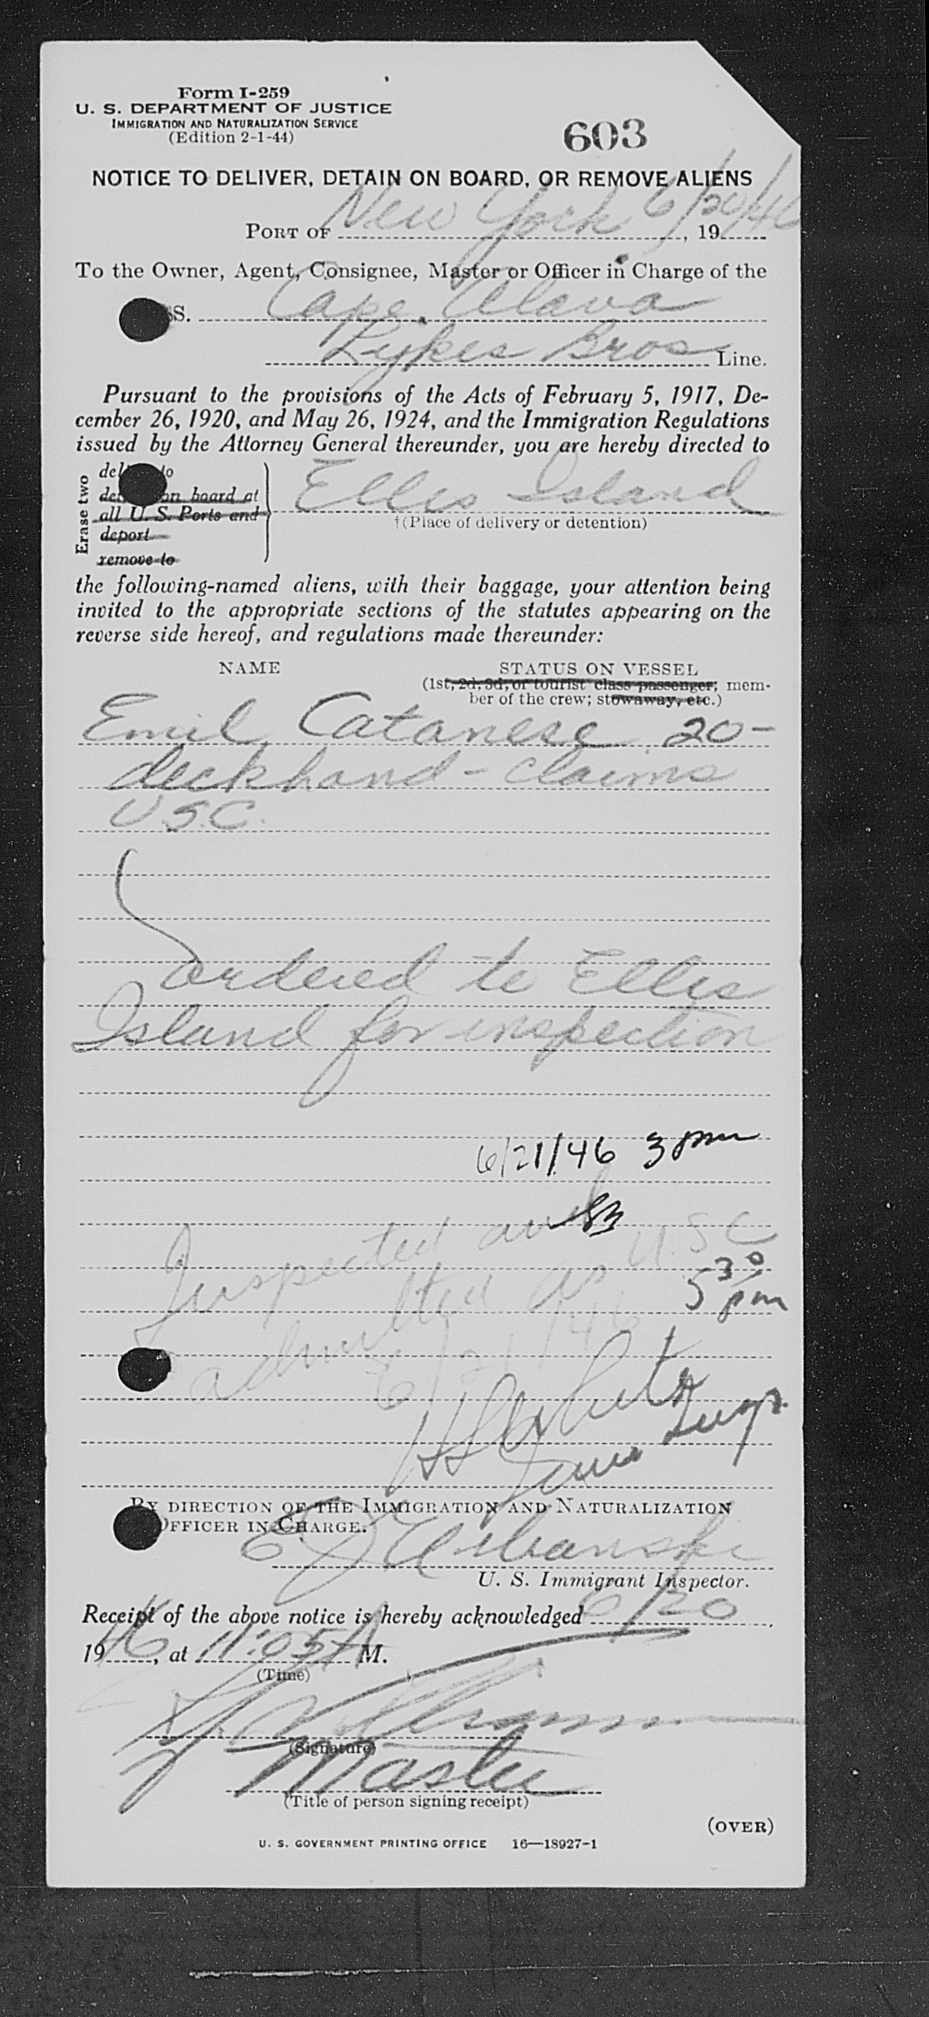 Form I-259
U. S. DEPARTMENT OF JUSTICE
IMMIGRATION AND NATURALIZATION SERVICE
(Edition 2-1-44)
603
NOTICE TO DELIVER, DETAIN ON BOARD, OR REMOVE ALIENS
PORT OF New York 6/20/46, 19
To the Owner, Agent, Consignee, Master or Officer in Charge of the
SS. Cape Alava
Lykes Bros Line.
Pursuant to the provisions of the Acts of February 5, 1917, De-
cember 26, 1920, and May 26, 1924, and the Immigration Regulations
issued by the Attorney General thereunder, you are hereby directed to
Erase two
to
on board at
all U. S. Ports and
deport
remove to
Ellis Island
†(Place of delivery or detention)
the following-named aliens, with their baggage, your attention being
invited to the appropriate sections of the statutes appearing on the
reverse side hereof, and regulations made thereunder:
NAME STATUS ON VESSEL
(1st, 2d, 3d, or tourist class passenger; mem-
ber of the crew; stowaway, etc.)
Emil Catanese 20-
deckhand - claims
U.S.C.
ordered to Ellis
Island for inspection
6/21/46 3 pm
Inspected and
admitted as U.S.C
5 30 pm
6/21/46
Insp.
BY DIRECTION OF THE IMMIGRATION AND NATURALIZATION
OFFICER IN CHARGE.
E J Urbanski
U. S. Immigrant Inspector.
Receipt of the above notice is hereby acknowledged 6/20,
1946, at 11:05 A M.
(Time)
(Signature)
Master
(Title of person signing receipt)
(OVER)
U. S. GOVERNMENT PRINTING OFFICE 16—18927-1